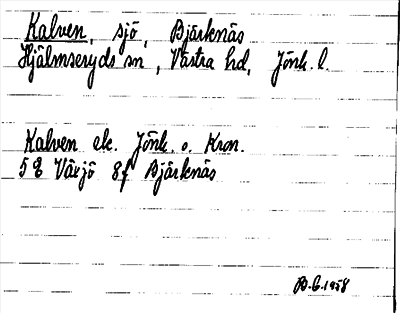 Kalven, sjö, Bjärknäs
Hjälmseryds sn, Västra hd, Jönk. l.
Kalven ek. Jönk. o. Kron.
5 E Växjö 8f Bjärknäs
B.G. 1958